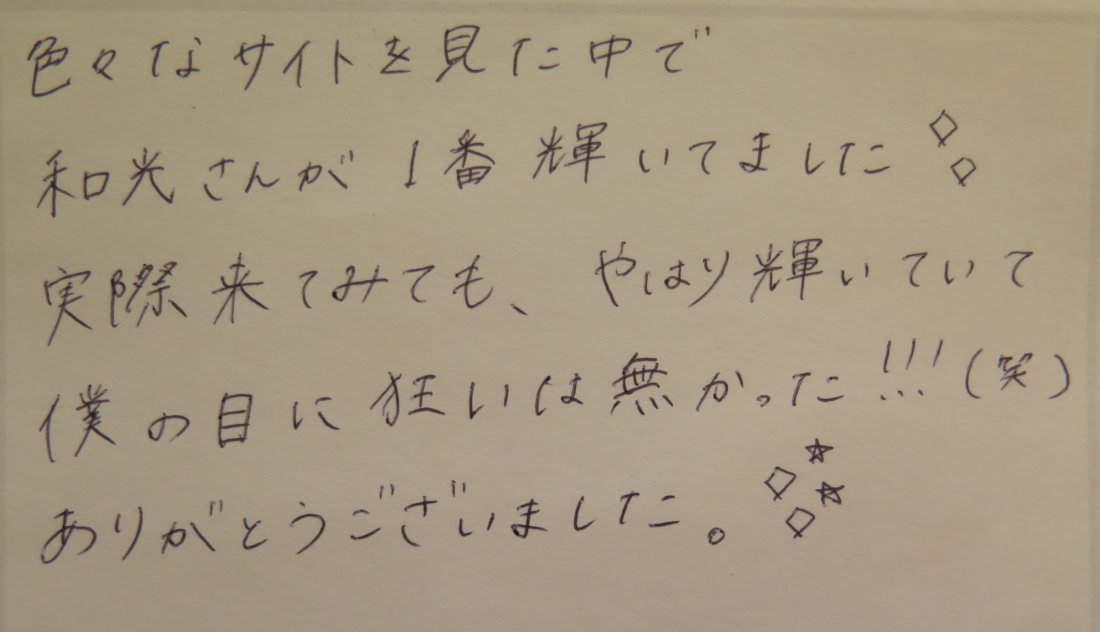 色々なサイトを見た中で
和光さんが1番輝いてました◇◇
実際来てみても、やはり輝いていて
僕の目に狂いは無かった!!!(笑)
ありがとうございました。◇☆☆◇